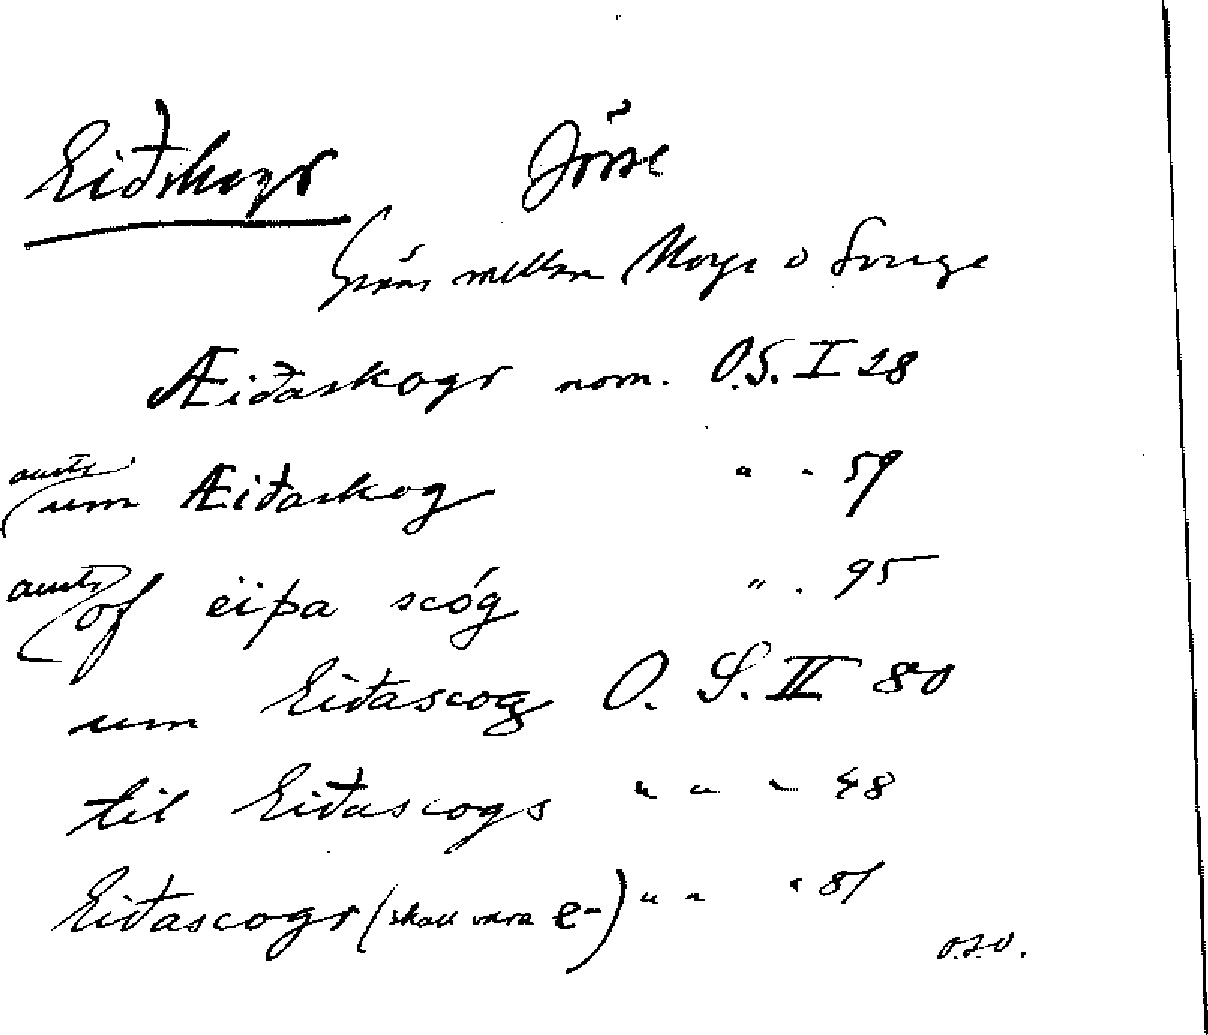 Eiðskogr Jösse
Gräns mellan Norge o Sverge
Æiðaskogr nom. O.S. I 28
austr um Æiðaskog " " 59
austr of ëiþa scóg " . 95
um Eiðascog O. S. II 80
til Eiðascogs " " " 48
Eiðascogr (skall vara e-) " " " 81
o.s.v.